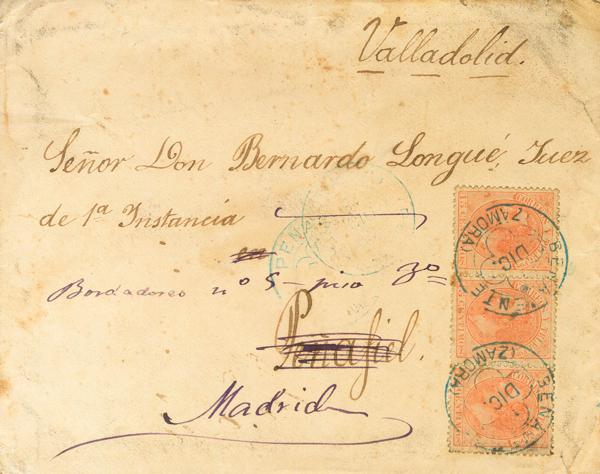 Valladolid.
Señor Don Bernardo Longué, Juez
de 1ª Instancia
en
Bordadores nº 5 - piso 3º
Peñafiel.
Madrid
PEÑA
BENAVENTE
(ZAMORA)
DIC.
BENA
(ZAMORA)
DIC.